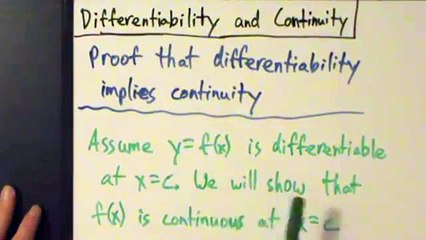 Differentiability and Continuity
Proof that differentiability
implies continuity
Assume y=f(x) is differentiable
at x=c. We will show that
f(x) is continuous at x=c